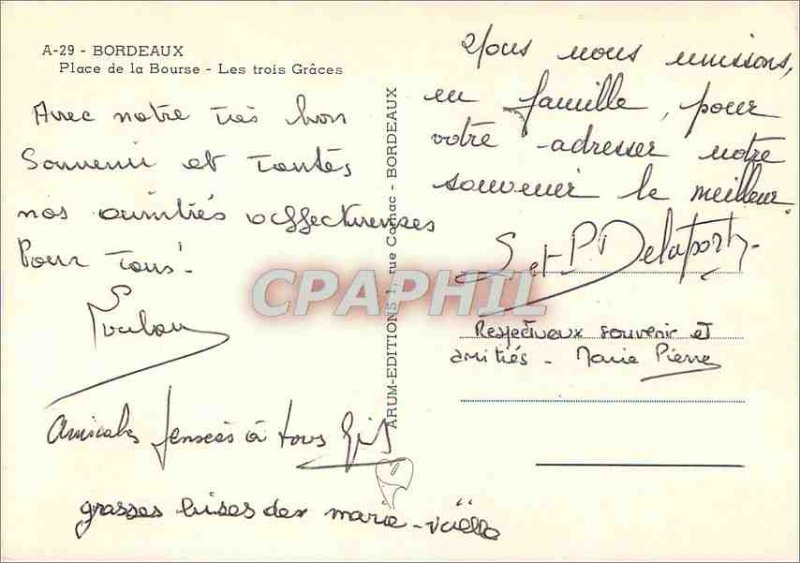 A-29 - BORDEAUX
Place de la Bourse - Les trois Grâces
Avec notre très bon
Souvenir et toutes
nos amitiés affectueuses
Pour Tous!
Amicales pensées à tous
grosses bises de marie-
ARUM-EDITIONS 1, rue Cornac - BORDEAUX
CPAPHIL
Nous nous unissons,
en famille, pour
votre adresser notre
souvenir le meilleur.
S et P Delaporte
Respectueux souvenir et
amitiés - Marie Pierre